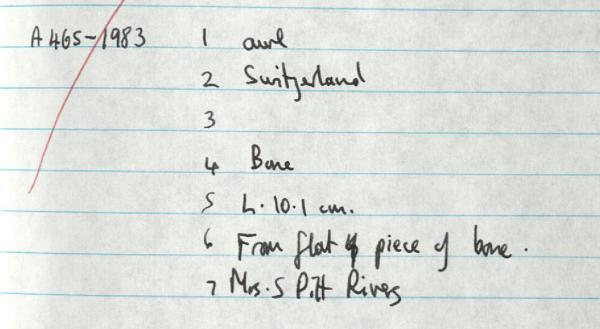 A465-1983 1 awl
2 Switzerland
3
4 Bone
5 L. 10.1 cm.
6 From flat piece of bone.
7 Mrs. S Pitt Rivers